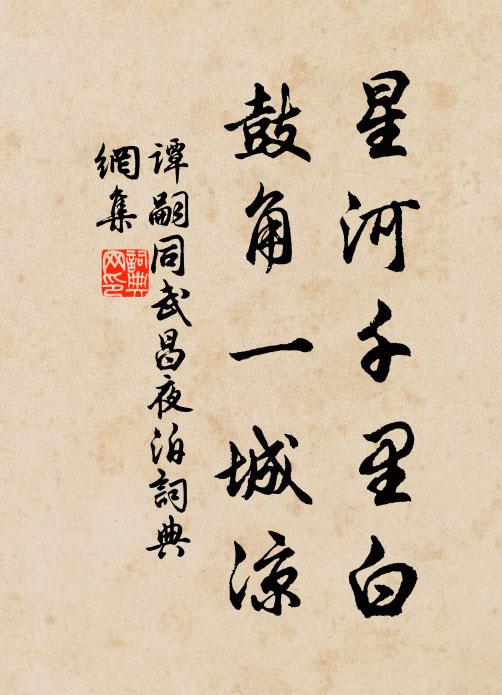 星河千里白
鼓角一城凉
谭嗣同武昌夜泊詞典
網集
詞典
网印